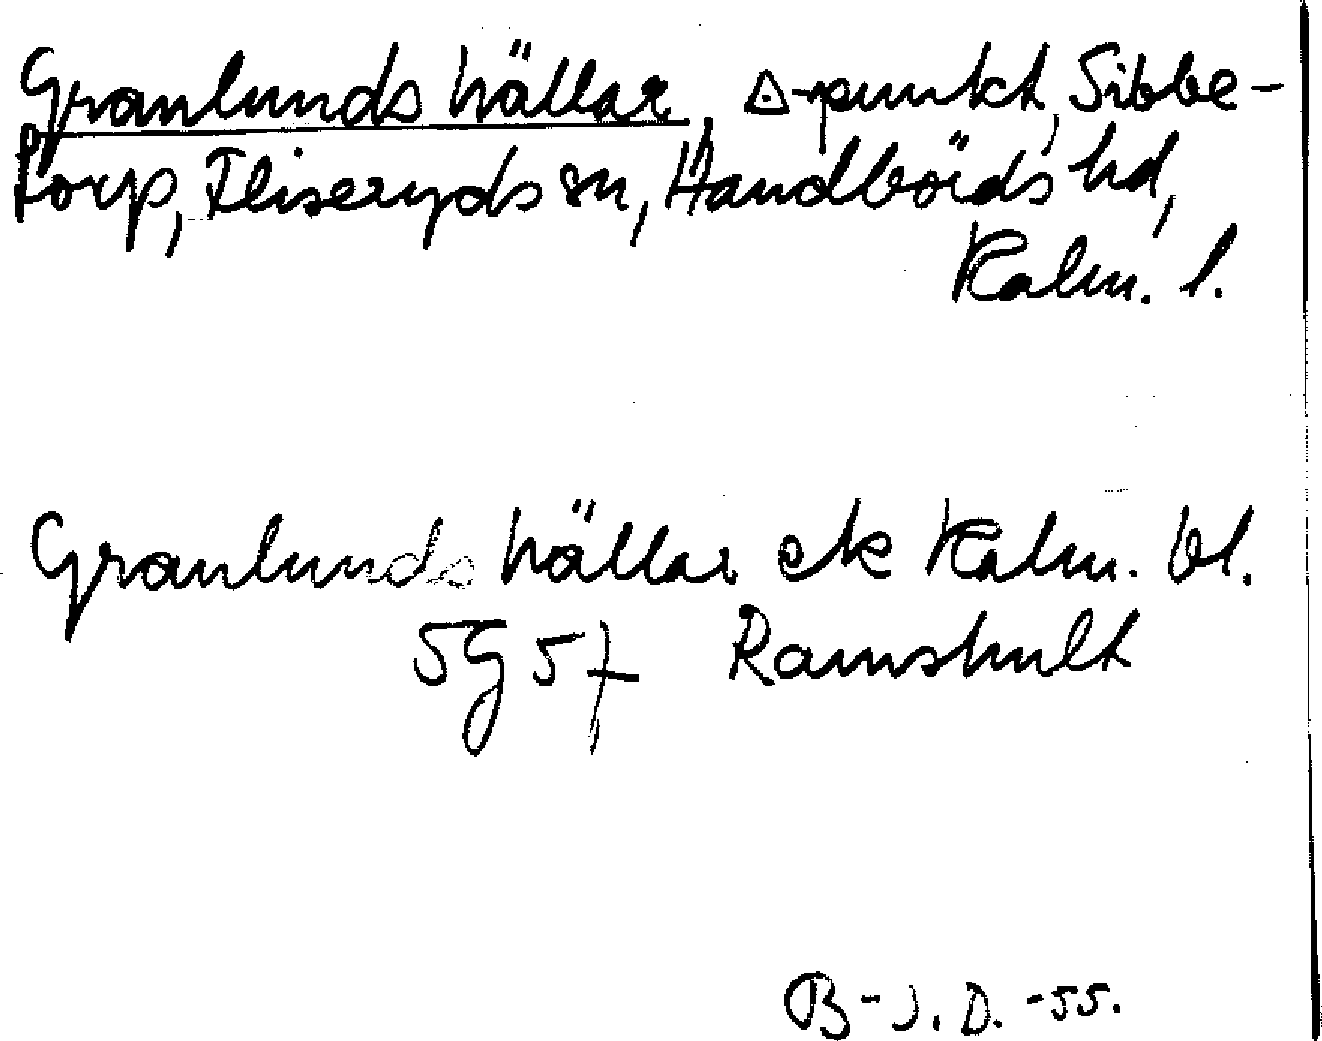 Granlunds hällar, △-punkt, Sibbe-
torp, Fliseryds sn, Handbörds hd,
Kalm. l.
Granlunds hällar ek Kalm. bl.
5G 5f Ramshult
B-J. D. -55.